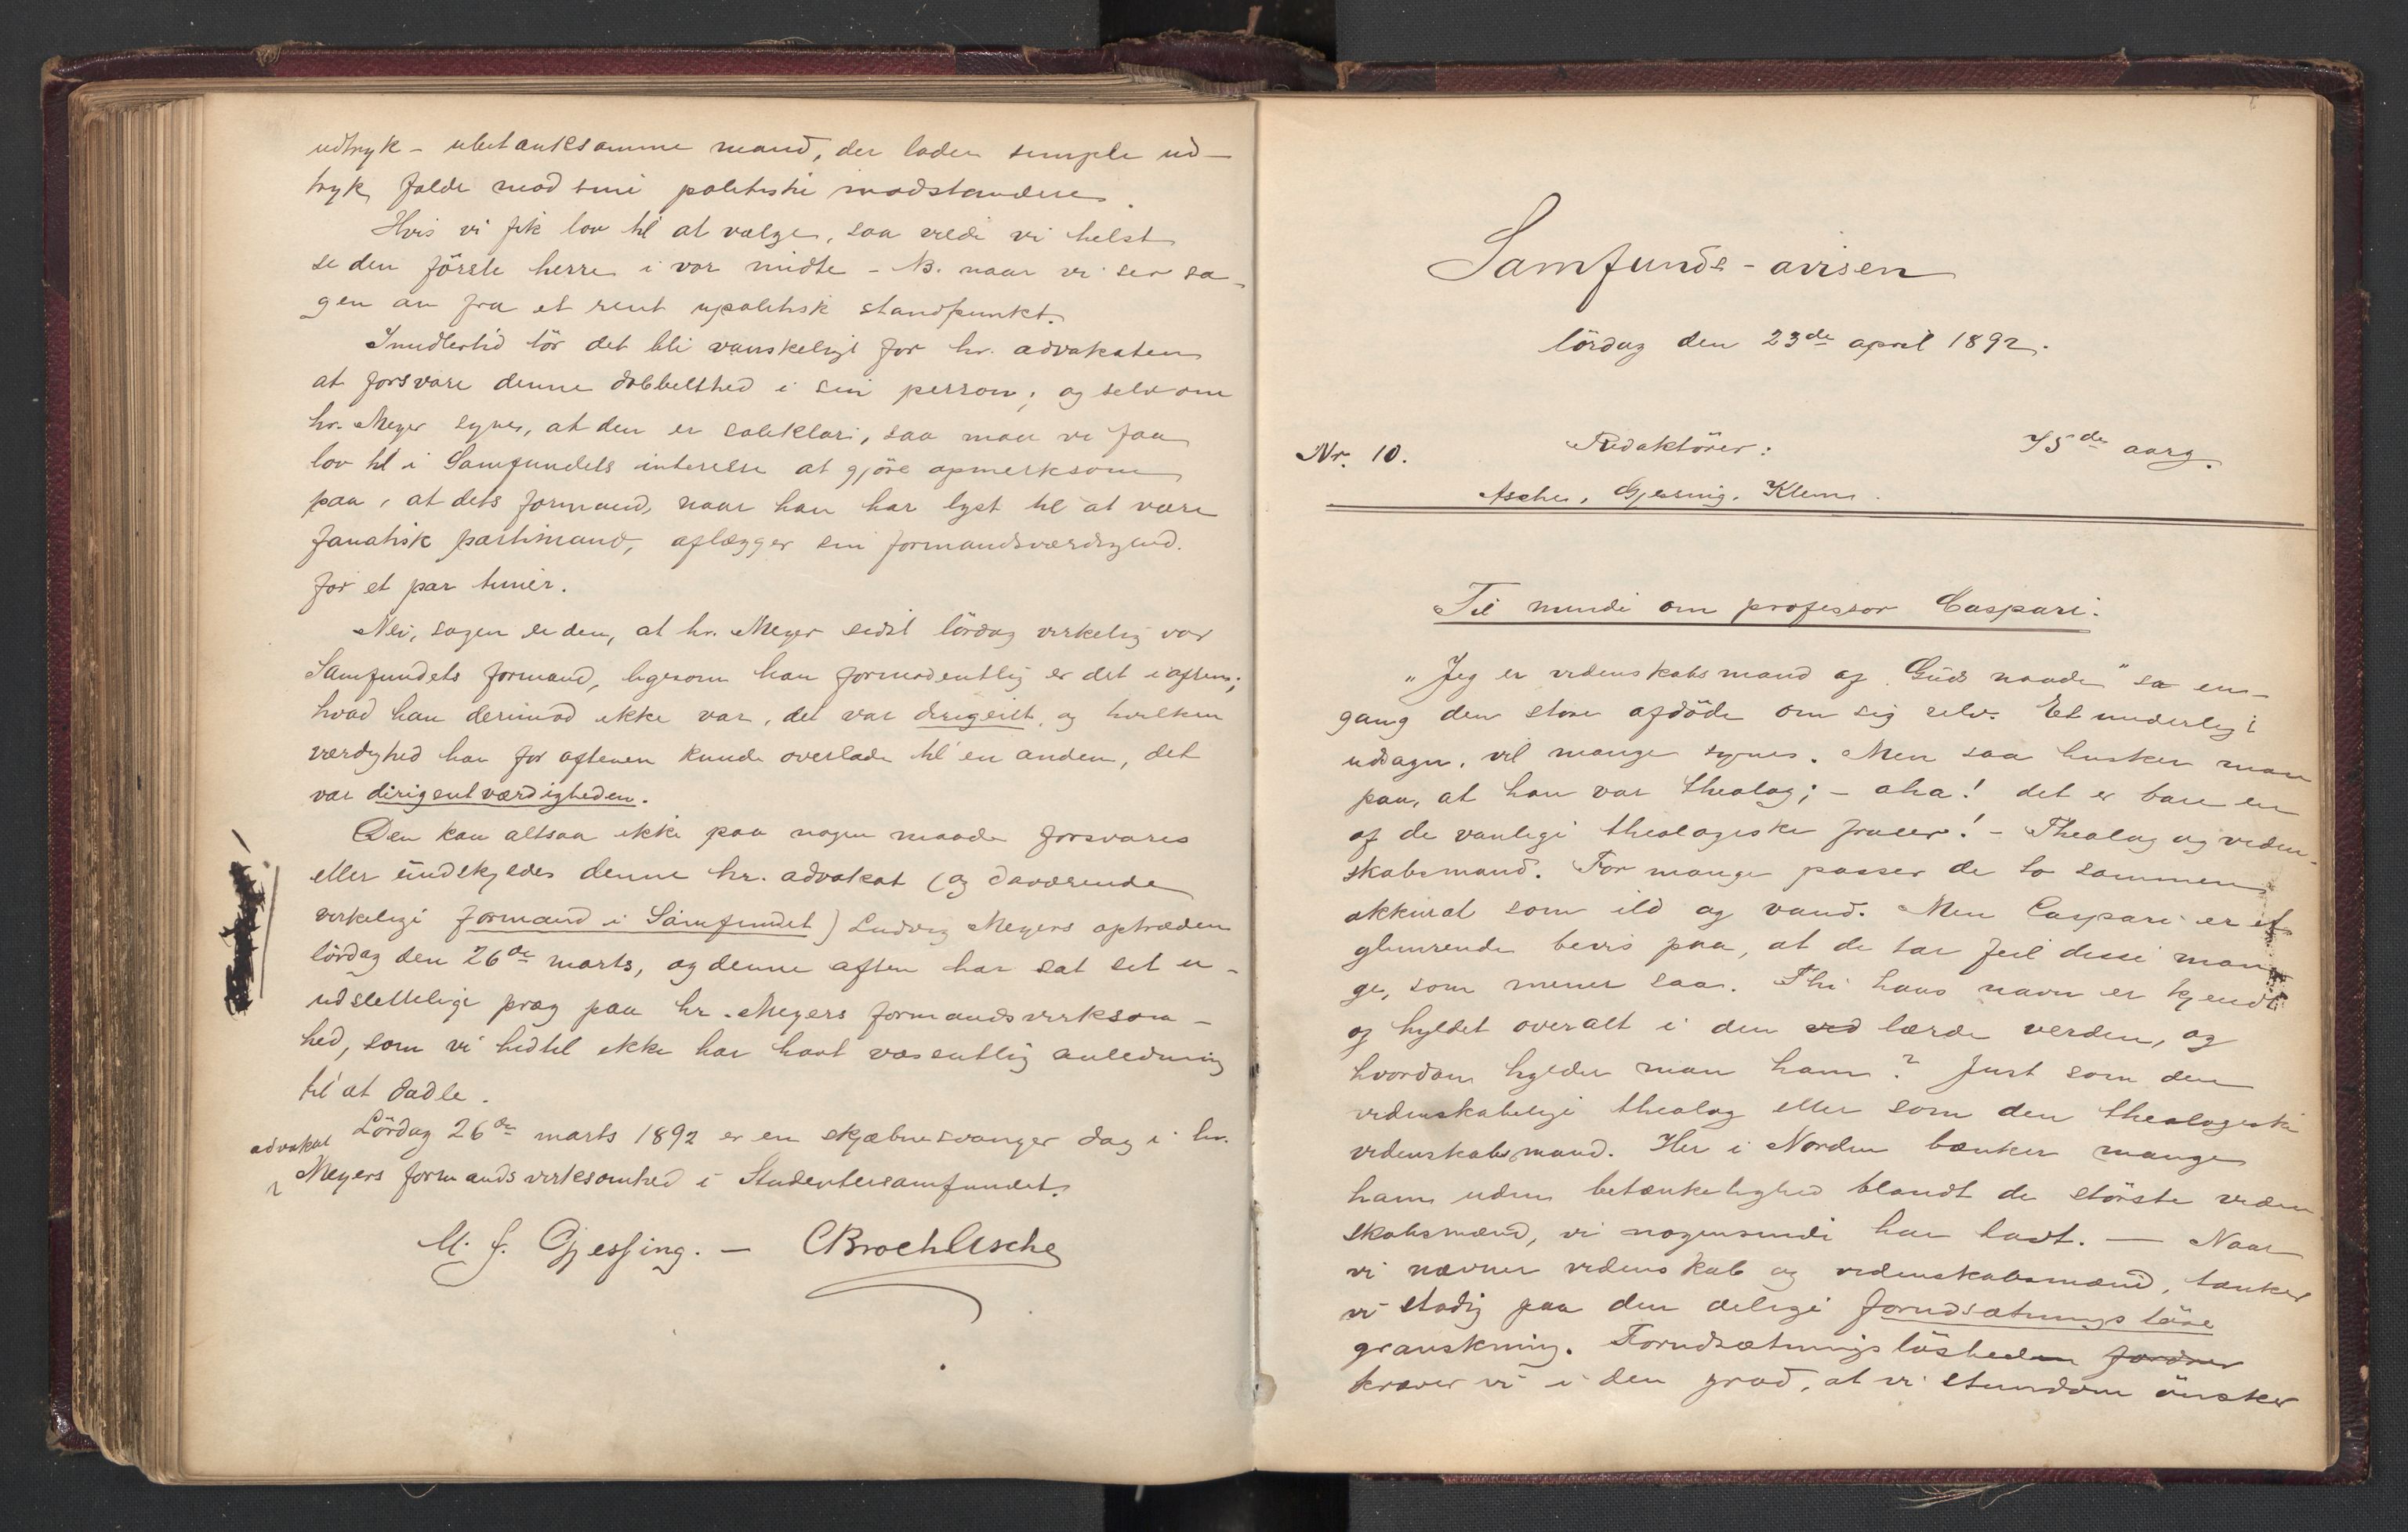 udtryk - ubetænksomme mand, der lader simple ud-
tryk falde mod sine politiske modstandere.
Hvis vi fik lov til at vælge, saa vilde vi helst
se den förste herre i vor midte - NB. naar vi ser sa-
gen an fra et rent upolitisk standpunkt.
Imidlertid tör det bli vanskeligt for hr. advokaten
at forsvare denne dobbelthed i sin person; og selv om
hr. Meyer synes, at den er soleklar, saa maa vi faa
lov til i Samfundets interesse at gjöre opmerksom
paa, at dets formand, naar han har lyst til at være
fanatisk partimand, aflægger sin formandsværdighed
for et par timer.
Nei, sagen er den, at hr. Meyer sidst lördag virkelig var
Samfundets formand, ligesom han formodentlig er det iaften;
hvad han derimod ikke var, det var dirigent, og hvilken
værdighed han for aftenen kunde overlade til en anden, det
var dirigentværdigheden.
Den kan altsaa ikke paa nogen maade forsvares
eller undskyldes denne hr. advokat (og daværende
virkelige formand i Samfundet) Ludvig Meyers optræden
lördag den 26de marts, og denne aften har sat sit u-
udslettelige præg paa hr. Meyers formandsvirksom-
hed, som vi hidtil ikke har havt væsentlig anledning
til at dadle.
Lördag 26de marts 1892 er en skjæbnesvanger dag i hr.
advokat
Meyers formandsvirksomhed i Studentersamfundet.
M. J. Gjessing. - CBrochAsche
Samfunds-avisen
lördag den 23de april 1892.
Nr. 10. Redaktörer: 75de aarg.
Asche, Gjessing, Klem.
Til minde om professor Caspari.
"Jeg er videnskabsmand af Guds naade" sa en-
gang den store afdöde om sig selv. Et underligt
udsagn, vil mange synes. Men saa husker man
paa, at han var theolog; - aha! det er bare en
af de vanlige theologiske fraser! - Theolog og viden-
skabsmand. For mange passer de to sammen
akkurat som ild og vand. Men Caspari er et
glimrende bevis paa, at de tar feil disse man-
ge, som mener saa. Thi hans navn er kjendt
og hyldet overalt i den vid lærde verden, og
hvordan hylder man ham? Just som den
videnskabelige theolog eller som den theologiske
videnskabsmand. Her i Norden bænker mange
ham uden betænkelighed blandt de störste viden-
skabsmænd, vi nogensinde har havt. — Naar
vi nævner videnskab og videnskabsmænd, tænker
vi stadig paa den deilige forudsætningslöse
granskning. Forudsætningslösheden fordrer
kræver vi i den grad, at vi stundom önsker